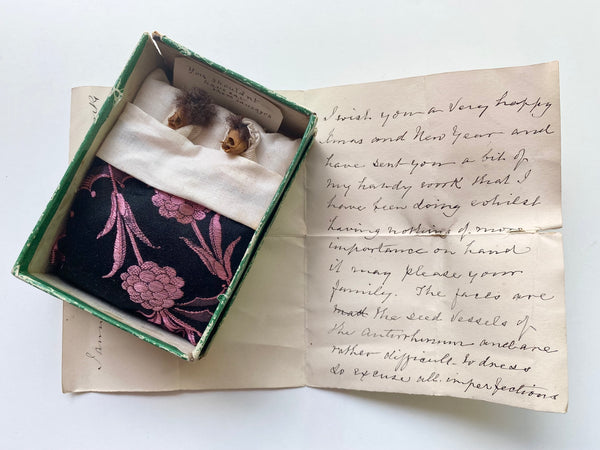 You shouldn't
I wish you a very happy
Xmas and New Year and
have sent you a bit of
my handy work that I
have been doing whilst
having nothing of more
importance on hand
it may please your
family. The faces are
the seed vessels of
the Antirrhinum and are
rather difficult to dress
so excuse all imperfections